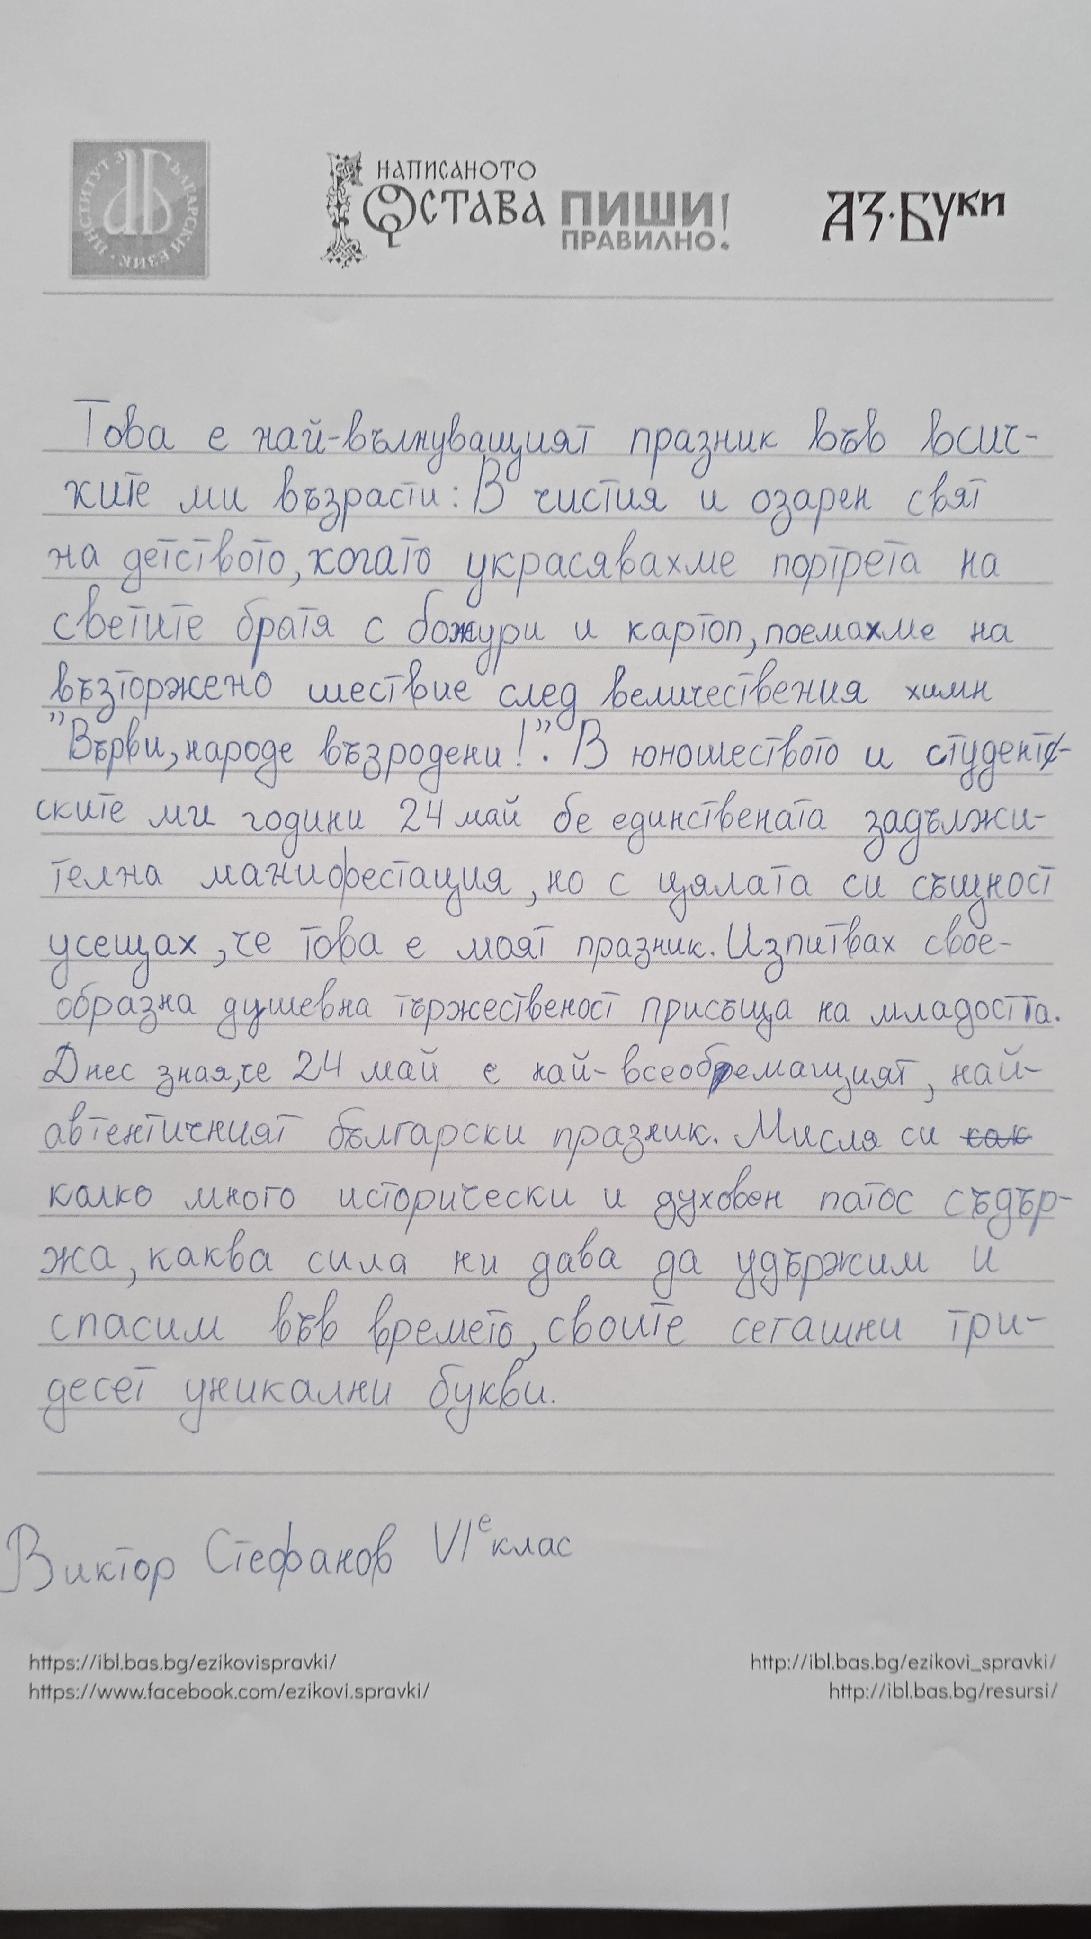 ИНСТИТУТ ЗА БЪЛГАРСКИ ЕЗИК
НАПИСАНОТО
ОСТАВА ПИШИ
ПРАВИЛНО!
АЗ·БУКИ
Това е най-вълнуващият празник във всич-
ките ми възрасти: В чистия и озарен свят
на детството, когато украсявахме портрета на
светите братя с божури и картоп, поемахме на
възторжено шествие след величествения химн
"Върви, народе възродени!". В юношеството и студент-
ските ми години 24 май бе единствената задължи-
телна манифестация, но с цялата си същност
усещах, че това е моят празник. Изпитвах свое-
образна душевна тържественост присъща на младостта.
Днес зная, че 24 май е най-всеобемащият, най-
автентичният български празник. Мисля си как
колко много исторически и духовен патос съдър-
жа, каква сила ни дава да удържим и
спасим във времето, своите сегашни три-
десет уникални букви.
Виктор Стефанов VIе клас
https://ibl.bas.bg/ezikovispravki/
http://ibl.bas.bg/ezikovi_spravki/
https://www.facebook.com/ezikovi.spravki/
http://ibl.bas.bg/resursi/